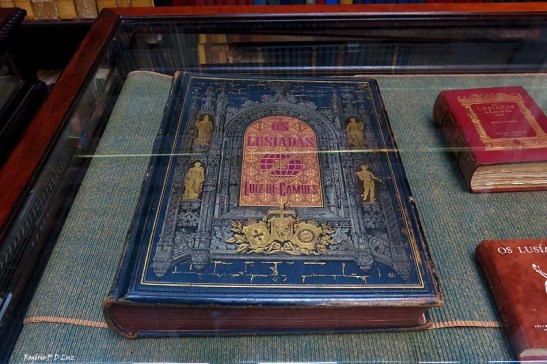 OS
LUSIADAS
LUIZ DE CAMÕES
Lusiadas
OS LUSÍA
Rogério P D Luz